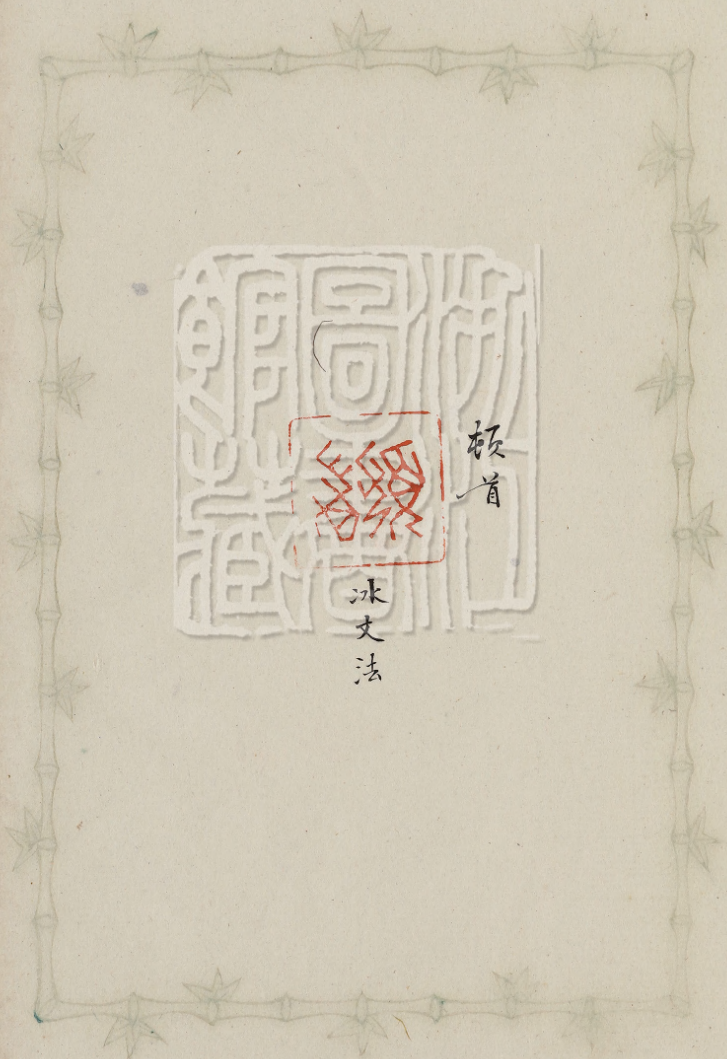 浙江
圖書
館藏
頓首
冰丈法